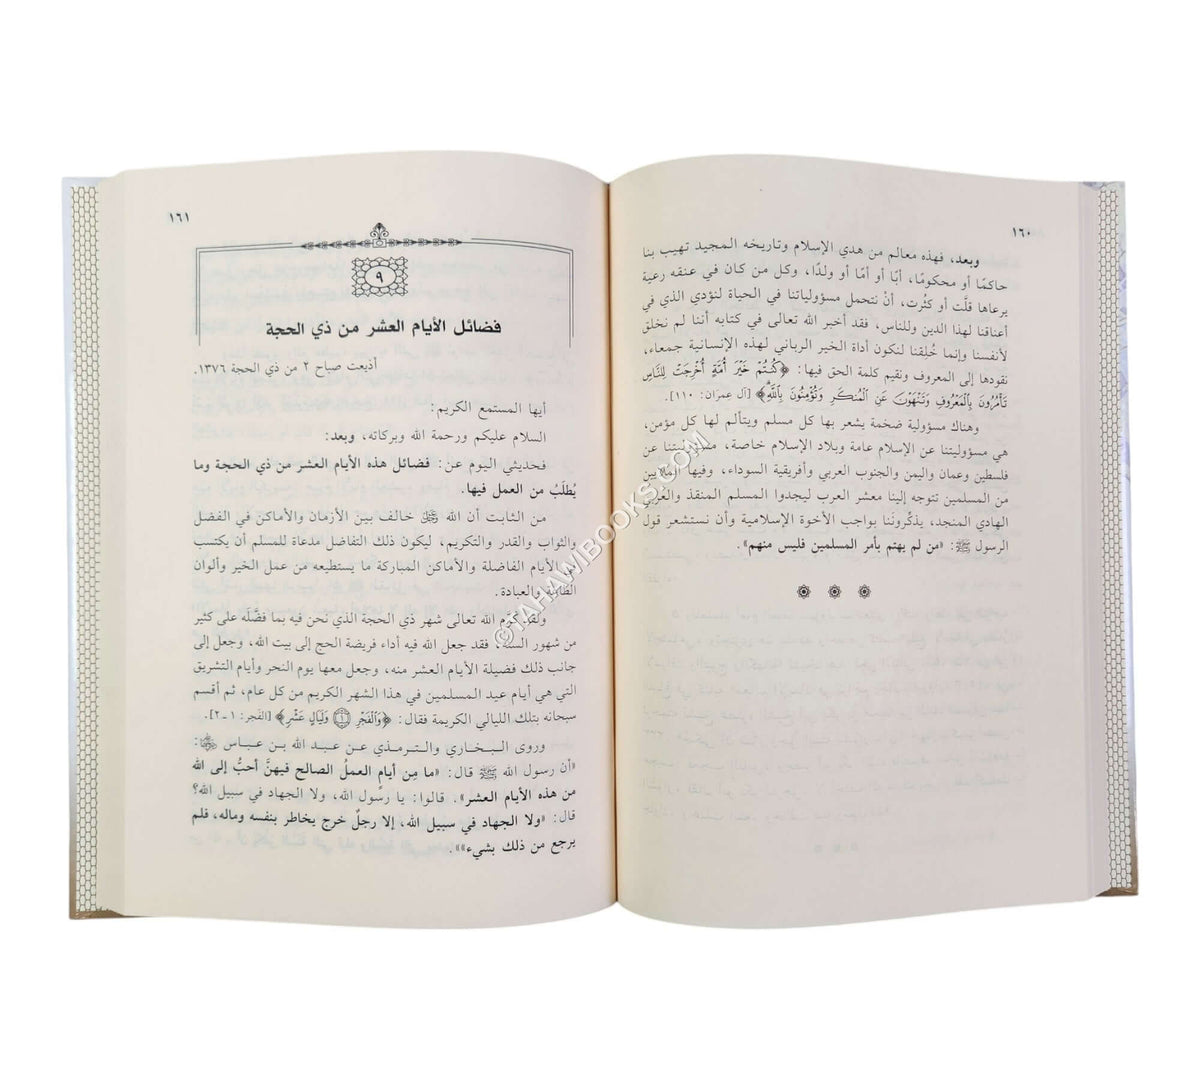 ١٦٠
وبعد، فهذه معالم من هدي الإسلام وتاريخه المجيد تهيب بنا
حاكمًا أو محكومًا، أبًا أو أمًا أو ولدًا، وكل من كان في عنقه رعية
يرعاها قلَّت أو كثُرت، أنْ نتحمل مسؤولياتنا في الحياة لنؤدي الذي في
أعناقنا لهذا الدين وللناس، فقد أخبر الله تعالى في كتابه أننا لم نخلق
لأنفسنا وإنما خُلِقنا لنكون أداة الخير الرباني لهذه الإنسانية جمعاء،
نقودها إلى المعروف ونقيم كلمة الحق فيها: ﴿كُنتُمْ خَيْرَ أُمَّةٍ أُخْرِجَتْ لِلنَّاسِ
تَأْمُرُونَ بِالْمَعْرُوفِ وَتَنْهَوْنَ عَنِ الْمُنكَرِ وَتُؤْمِنُونَ بِاللَّهِ﴾ [آل عِمرَان: ١١٠].
وهناك مسؤولية ضخمة يشعر بها كل مسلم ويتألم لها كل مؤمن،
هي مسؤوليتنا عن الإسلام عامة وبلاد الإسلام خاصة، مسؤوليتنا عن
فلسطين وعمان واليمن والجنوب العربي وأفريقية السوداء، وفيها الملايين
من المسلمين تتوجه إلينا معشر العرب ليجدوا المسلم المنقذ والعربي
الهادي المنجد، يذكِّرونَنا بواجب الأخوة الإسلامية وأن نستشعر قول
الرسول ﷺ: «من لم يهتم بأمر المسلمين فليس منهم».
١٦١
٩
فضائل الأيام العشر من ذي الحجة
أذيعت صباح ٢ من ذي الحجة ١٣٧٦.
أيها المستمع الكريم:
السلام عليكم ورحمة الله وبركاته، وبعد:
فحديثي اليوم عن: فضائل هذه الأيام العشر من ذي الحجة وما
يُطلَبُ من العمل فيها.
من الثابت أن الله ﷻ خالف بين الأزمان والأماكن في الفضل
والثواب والقدر والتكريم، ليكون ذلك التفاضل مدعاة للمسلم أن يكتسب
الأيام الفاضلة والأماكن المباركة ما يستطيعه من عمل الخير وألوان
الطاعة والعبادة.
ولقد كرَّم الله تعالى شهر ذي الحجة الذي نحن فيه بما فضَّله على كثير
من شهور السنة، فقد جعل الله فيه أداء فريضة الحج إلى بيت الله، وجعل إلى
جانب ذلك فضيلة الأيام العشر منه، وجعل معها يوم النحر وأيام التشريق
التي هي أيام عيد المسلمين في هذا الشهر الكريم من كل عام، ثم أقسم
سبحانه بتلك الليالي الكريمة فقال: ﴿وَالْفَجْرِ ۝١ وَلَيَالٍ عَشْرٍ﴾ [الفَجر: ١-٢].
وروى البخاري والترمذي عن عبد الله بن عباس ﷺ:
«أن رسول الله ﷺ قال: «ما مِن أيامٍ العملُ الصالح فيهنَّ أحبُّ إلى الله
من هذه الأيام العشر». قالوا: يا رسول الله، ولا الجهاد في سبيل الله؟
قال: «ولا الجهاد في سبيل الله، إلا رجلٌ خرج يخاطر بنفسه وماله، فلم
يرجع من ذلك بشيء»».
©TAHAWIBOOKS.COM